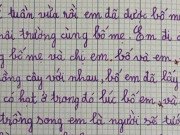 tuần vừa rồi em đã được bố m
ây trường cùng bố mẹ. Em đi c
g bố mẹ và chị em, bố em và
ồng cây với nhau, bố em đã lấy
có hạt ở trong đó lúc bố em, và
trồng song em là người sẽ tướ